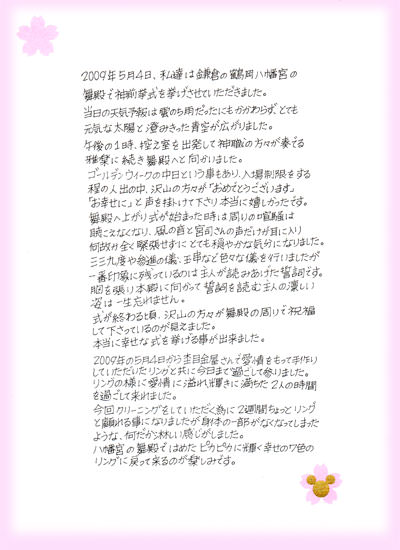 2009年5月4日、私達は鎌倉の鶴岡八幡宮の
舞殿で神前挙式を挙げさせていただきました。
当日の天気予報は曇のち雨だったにもかかわらず、とても
元気な太陽と澄みきった青空が広がりました。
午後の1時、控え室を出発して神職の方々が奏でる
雅楽に続き舞殿へと向かいました。
ゴールデンウィークの中日という事もあり、入場制限をする
程の人出の中、沢山の方々が"おめでとうございます"
"お幸せに"と声を掛けて下さり本当に嬉しかったです。
舞殿へ上がり式が始まった時は周りの喧騒は
聴こえなくなり、風の音と宮司さんの声だけが耳に入り
何故か全く緊張せずにとても穏やかな気分になりました。
三三九度や参進の儀、玉串など色々な儀を行いましたが
一番印象に残っているのは主人が読みあげた誓詞です。
胸を張り本殿に向かって誓詞を読む主人の凛しい
姿は一生忘れません。
式が終わる頃、沢山の方々が舞殿の周りで祝福
して下さっているのが見えました。
本当に幸せな式を挙げる事が出来ました。
2009年の5月4日から杢目金屋さんで愛情をもって手作り
していただいたリングと共に今日まで過ごして参りました。
リングの様に愛情に溢れ、輝きに満ちた2人の時間
を過ごして来れました。
今回クリーニングをしていただく為に2週間ちょっとリング
と離れる事になりましたが身体の一部がなくなってしまった
ような、何だか淋しい感じがしました。
八幡宮の舞殿ではめたピカピカに輝く幸せのワ色の
リングに戻って来るのが楽しみです。